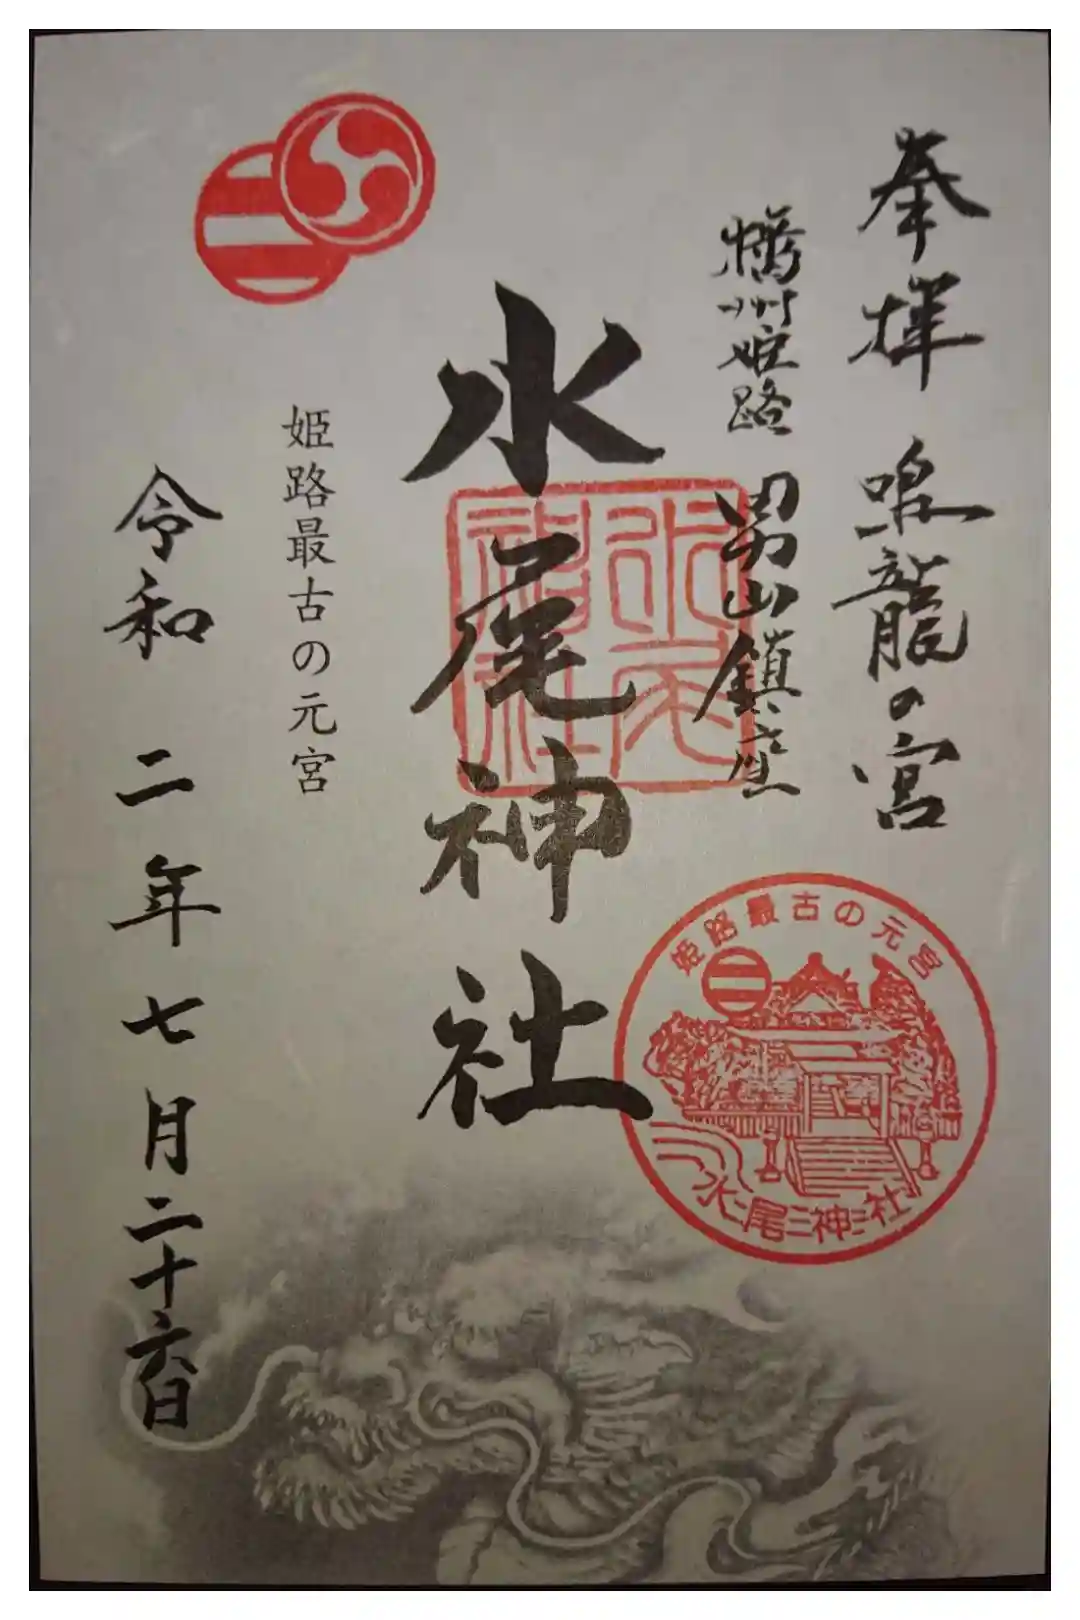 奉拝 鳴龍の宮
播州姫路 男山鎮座
水尾神社
水尾神社
姫路最古の元宮
令和二年七月二十六日
姫路最古の元宮
水尾神社